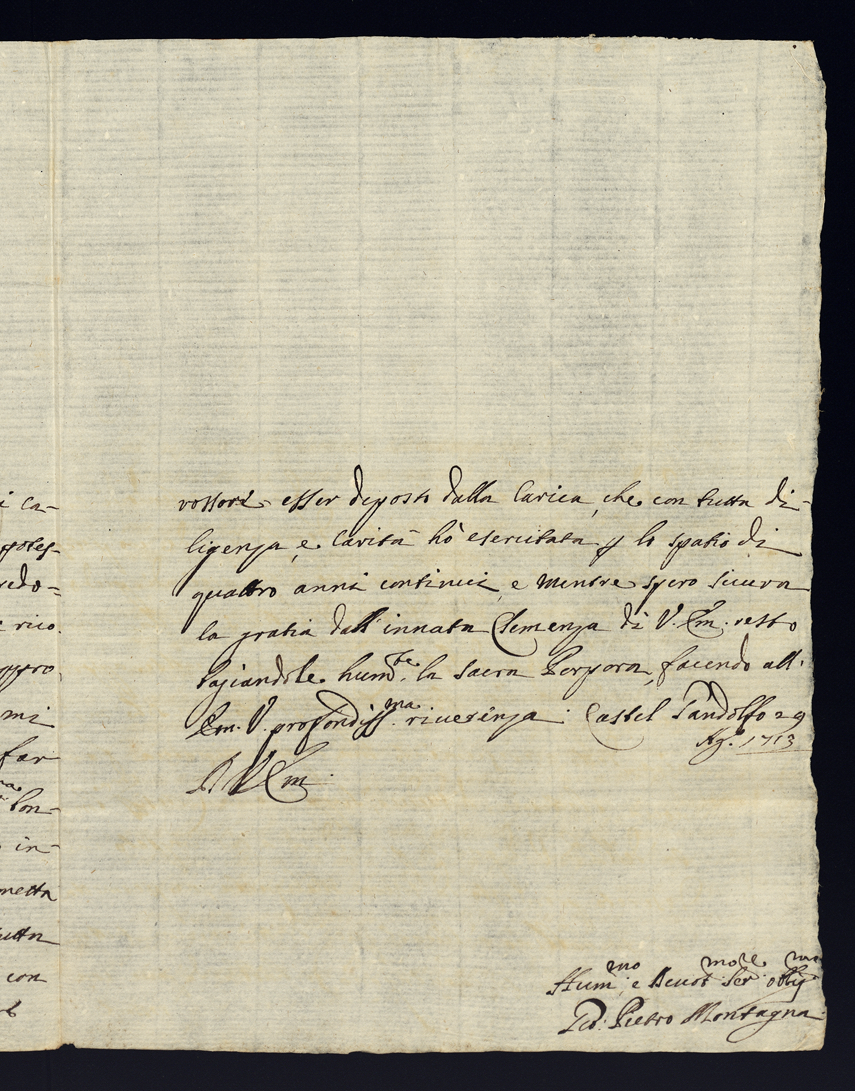 i Ca-
redo=
e rico.
mi
far
Con-
in-
metta
tutta
con
rossore esser deposto dalla Carica, che con tutta di-
ligenza, e Carità hò esercitata p lo spatio di
quattro anni continui, e mentre spero sicura
la gratia dall'innata Clemenza di V. Em. resto
bagiandole hum.te la Sacra Porpora, facendo all'
Em. V. profondiss.ma riverenza. Castel Gandolfo 29
Ag.o 1713
D. V. Em.
Hum.mo e Devot.mo Ser.re obblig.mo
Pietro Montagna